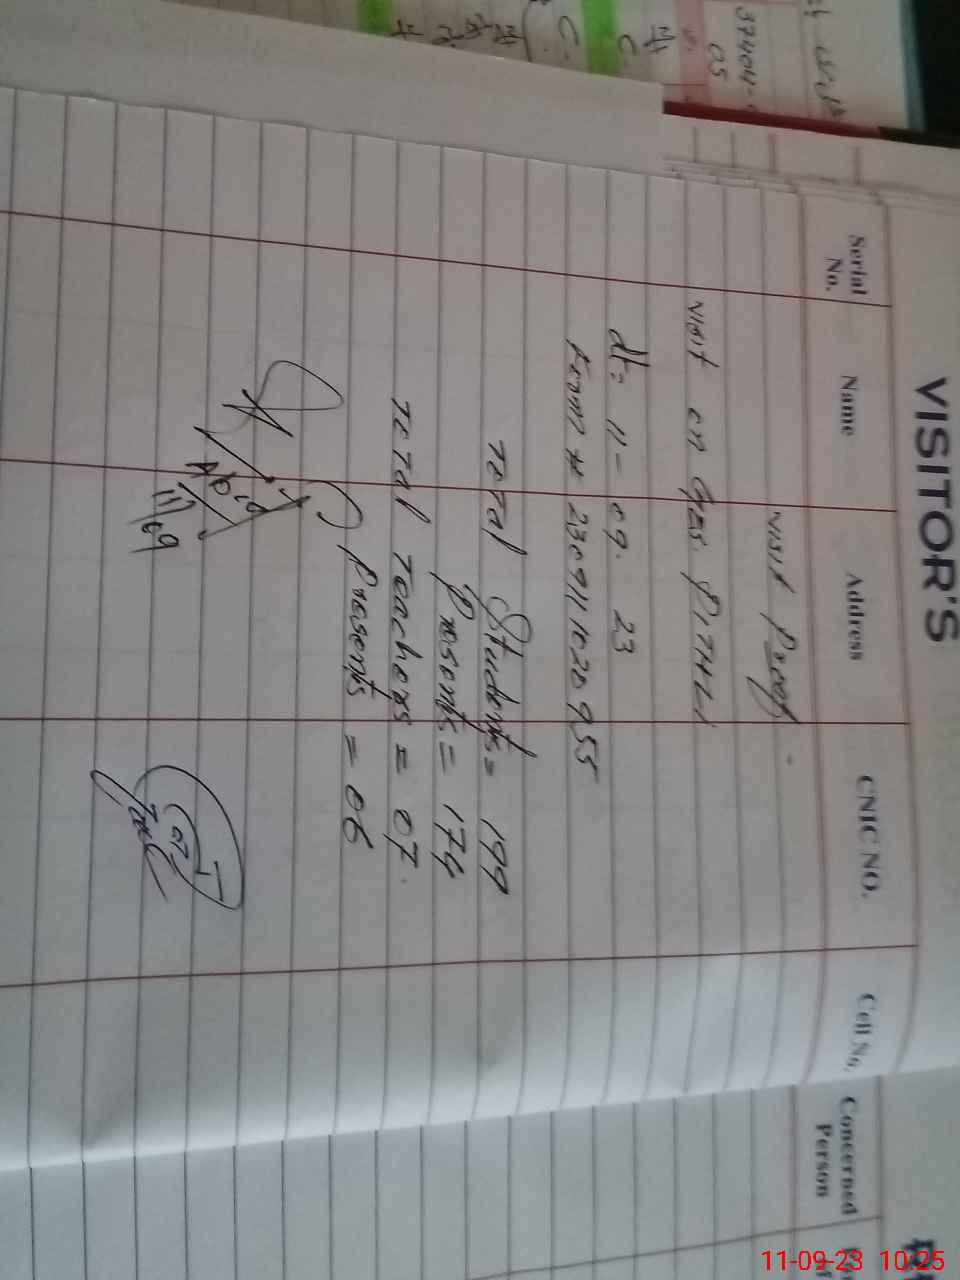 VISITOR'S
Serial No.
Name
Address
CNIC NO.
Cell No.
Concerned Person
visit Proof.
visit on GES. PITHLI
dt: 11-09. 23
Form # 2309111020955
Total Students = 199
Presents = 174
Total Teachers = 07.
Presents = 06
11/09
37404-
05
11-09-23 10:25